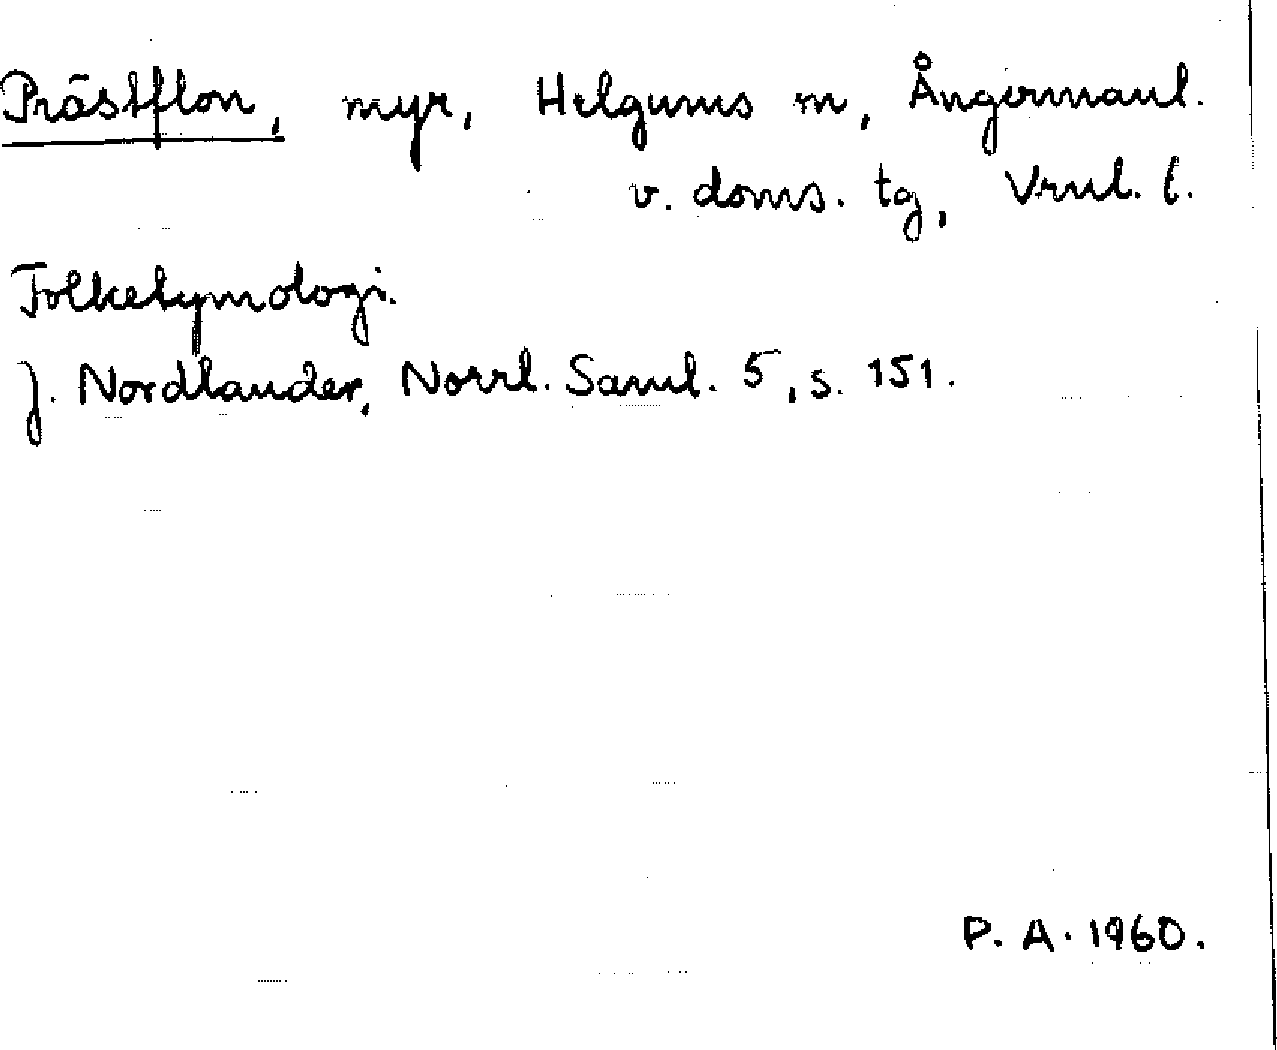 Prästflon, myr, Helgums sn, Ångermanl.
v. doms. tg, Vrnl. l.
Folketymologi.
J. Nordlander, Norrl. Saml. 5, s. 151.
P. A. 1960.